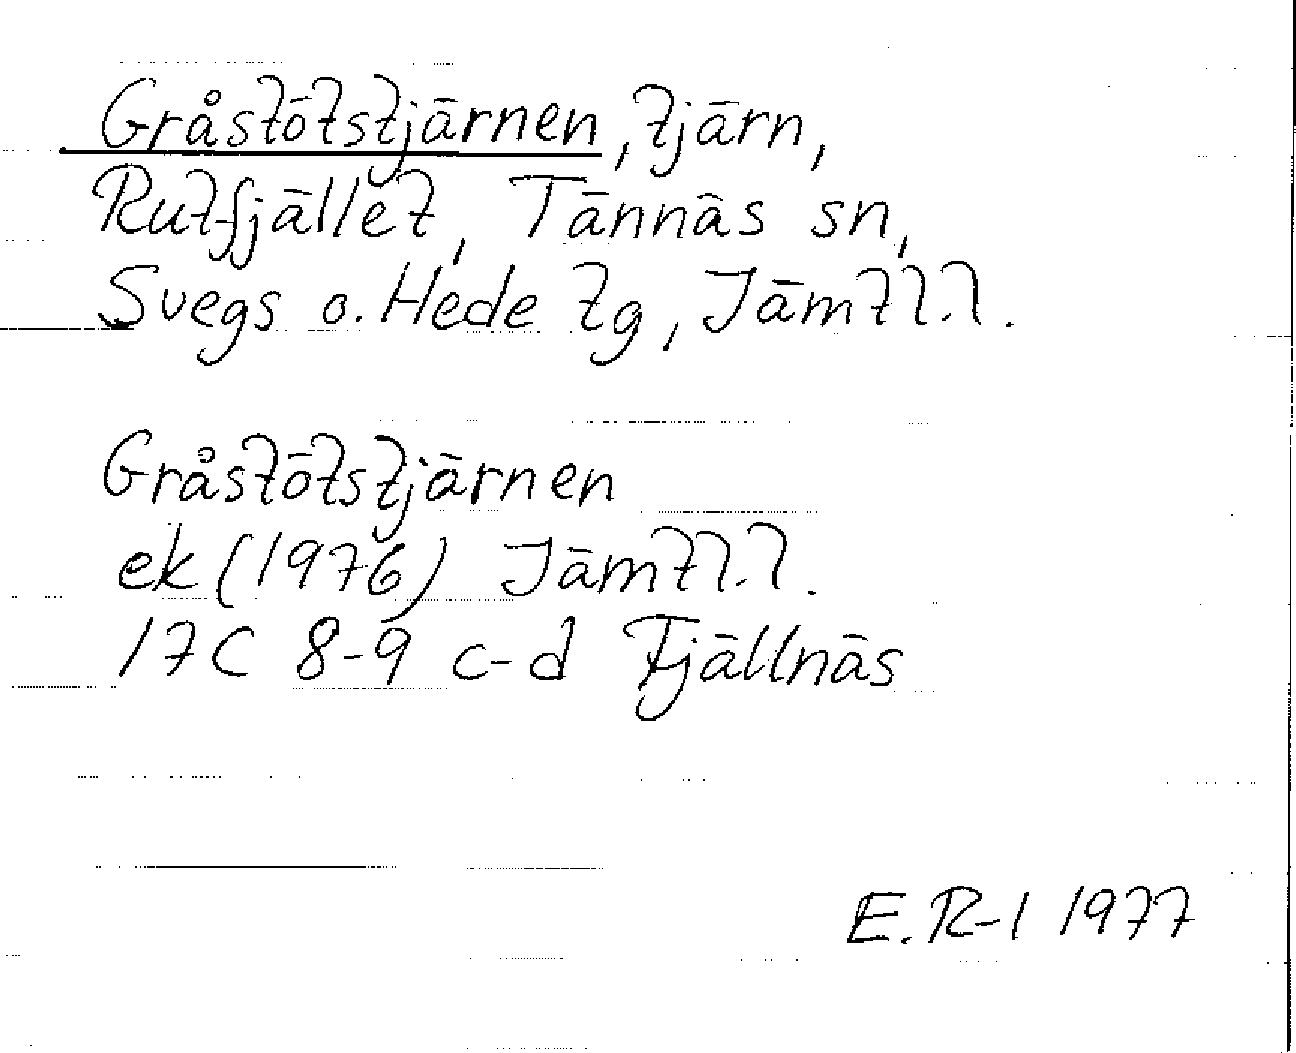 Gråstötstjärnen, tjärn,
Rutfjället, Tännäs sn,
Svegs o. Hede tg, Jämtl.l.
Gråstötstjärnen
ek (1976) Jämtl.l.
17C 8-9 c-d Fjällnäs
E.R-l 1977